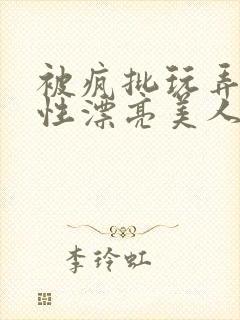 被疯批玩弄
性漂亮美人
李玲虹